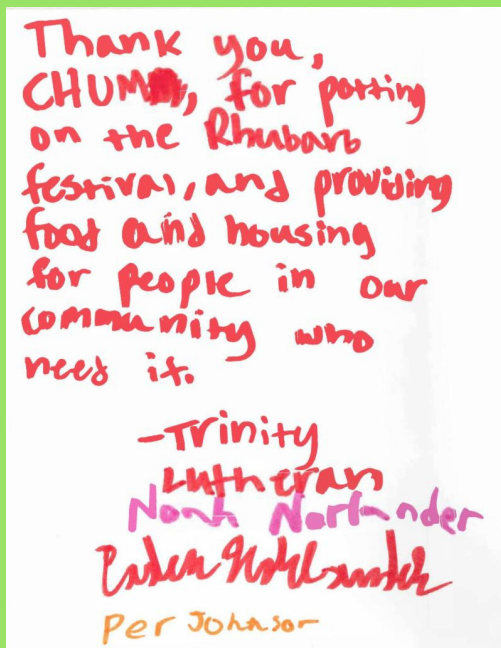 Thank you,
CHUM, for potting
on the Rhubarb
festival, and providing
food and housing
for people in our
community who
need it.
-Trinity
Lutheran
Noah Norlander
Per Johnson